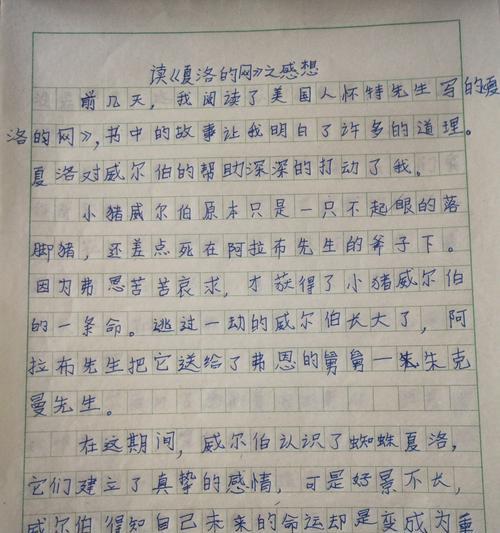 读《夏洛的网》之感想
前几天，我阅读了美国人怀特先生写的《夏
洛的网》，书中的故事让我明白了许多的道理。
夏洛对威尔伯的帮助深深的打动了我。
小猪威尔伯原本只是一只不起眼的落
脚猪，还差点死在阿拉布先生的斧子下。
因为弗恩苦苦哀求，才获得了小猪威尔伯
的一条命。逃过一劫的威尔伯长大了，阿
拉布先生把它送给了弗恩的舅舅一朱克
曼先生。
在这期间，威尔伯认识了蜘蛛夏洛，
它们建立了真挚的感情，可是好景不长，
威尔伯得知自己未来的命运却是变成为熏